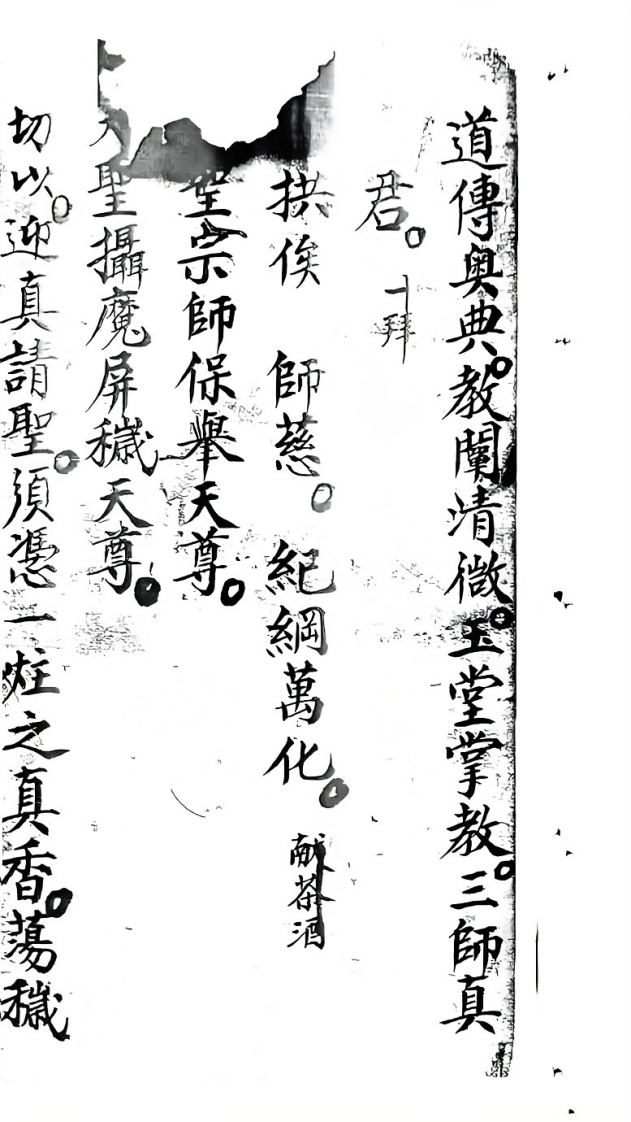 道傳奧典。教闡清微。玉堂掌教。三師真
君。 一拜
拱俟 師慈。紀綱萬化。 献茶酒
宗師保舉天尊。
聖攝魔屏穢天尊。
切以。迎真請聖。須憑一炷之真香。蕩穢